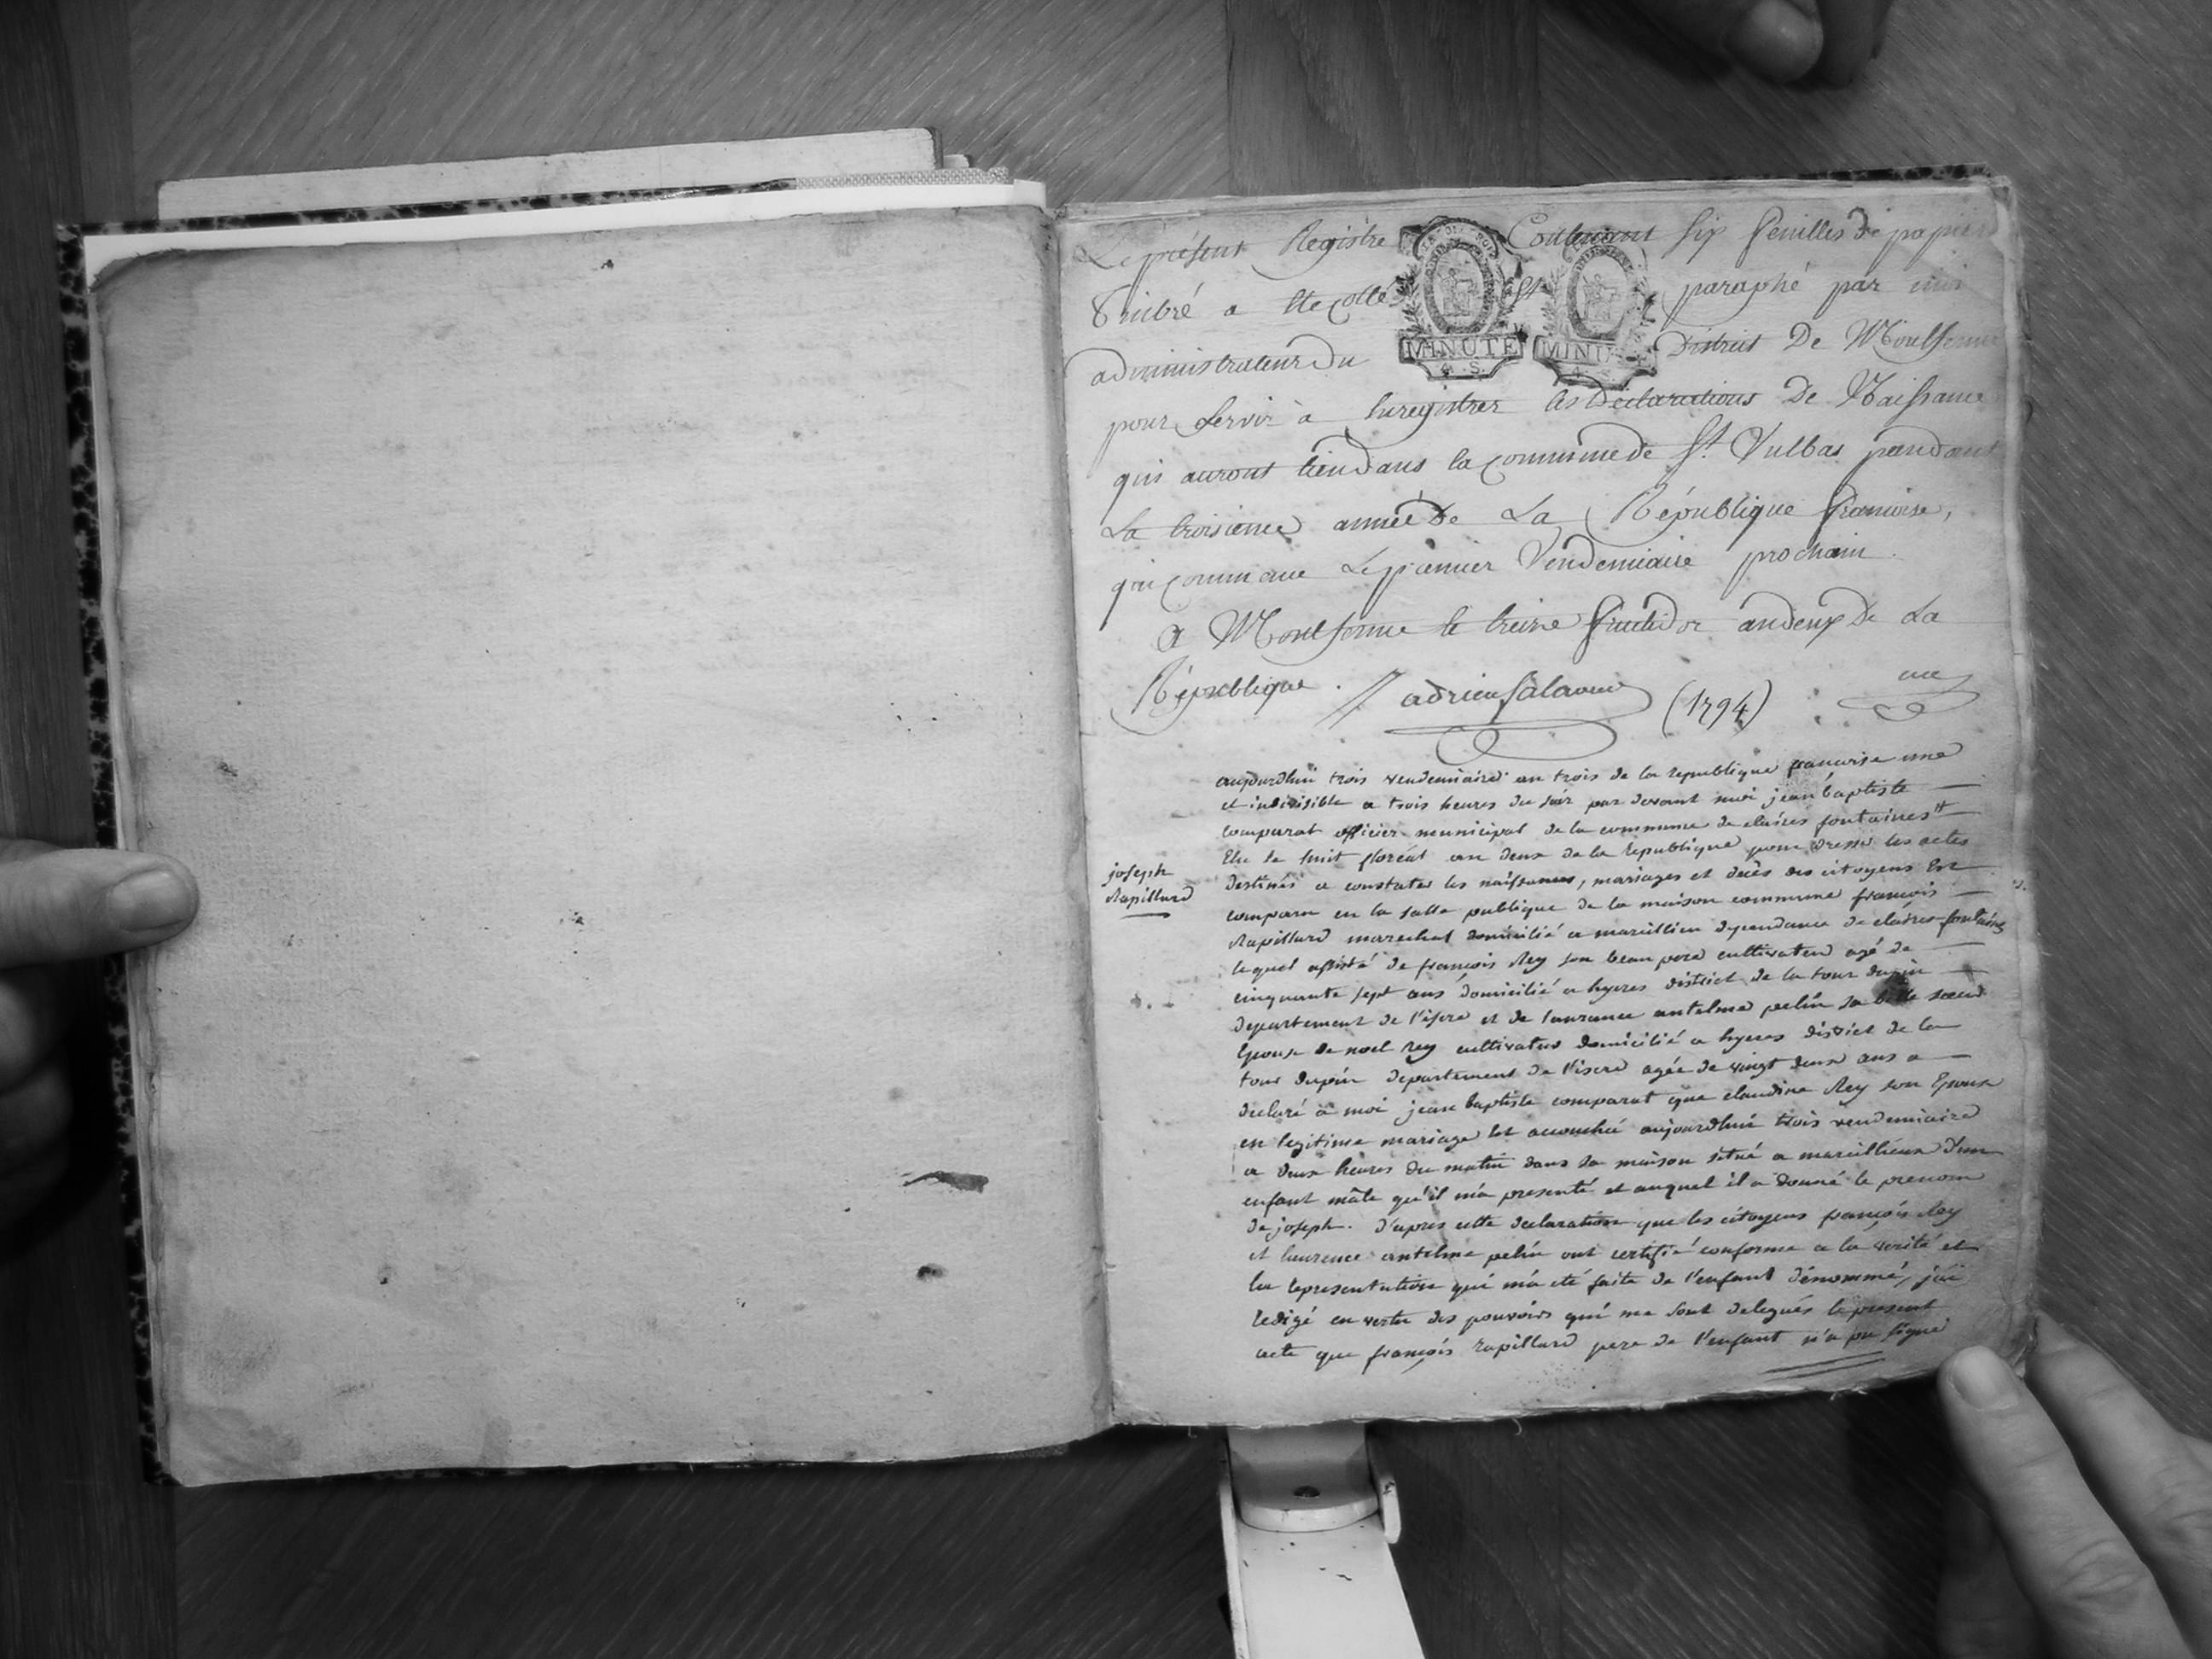 Le présent Registre Contenant six feuilles de papier
timbré a été cotté Et paraphé par moi
administrateur Du District De Montferme
pour servir à Enregistrer les Déclarations De Naissance
qui auront lieu dans la commune de St. Vulbas pendant
La troisieme année De La République francoise,
qui commence Le premier Vendemiaire prochain.
A Montferme le treize fructidor an deux De La
République. adrien (1794)
MINUTE MINUTE
aujourdhui trois vendemiaire an trois de la republique francoise une
et indivisible a trois heures du soir par devant moi jean baptiste
comparat officier municipal de la commune de claires fontaines
Elu le huit floréal an deux de la republique pour dresser les actes
destinés a constater les naissances, mariages et décès des citoyens Est
comparu en la salle publique de la maison commune françois
joseph
Rapillard
Rapillard marechal domicilié a marcillieu dependance de claires-fontaines
lequel assisté de françois Rey son beau pere cultivateur agé de
cinquante sept ans domicilié a hyeres district de la tour dupin
departement de l'isere et de laurance antelme pelin sa belle soeur
Epouse de noel Rey cultivateur domicilié a hyeres district de la
tour dupin departement de l'isere agée de vingt deux ans a
declaré a moi jean baptiste comparat que claudine Rey son Epouse
en legitime mariage Est accouchée aujourdhui trois vendemiaire
a deux heures du matin dans sa maison situé a marcillieux d'un
enfant mâle qu'il m'a presenté et auquel il a donné le prenom
de joseph. d'apres cette declaration que les citoyens françois Rey
et laurence antelme pelin ont certifié conforme a la verité et
la representation qui m'a eté faite de l'enfant dénommé, j'ai
redigé en vertu des pouvoirs qui me sont delegués le present
acte que françois rapillard pere de l'enfant n'a pu signé